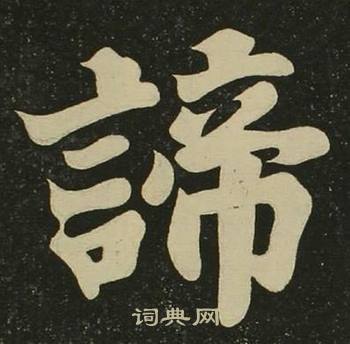 諦
词典网